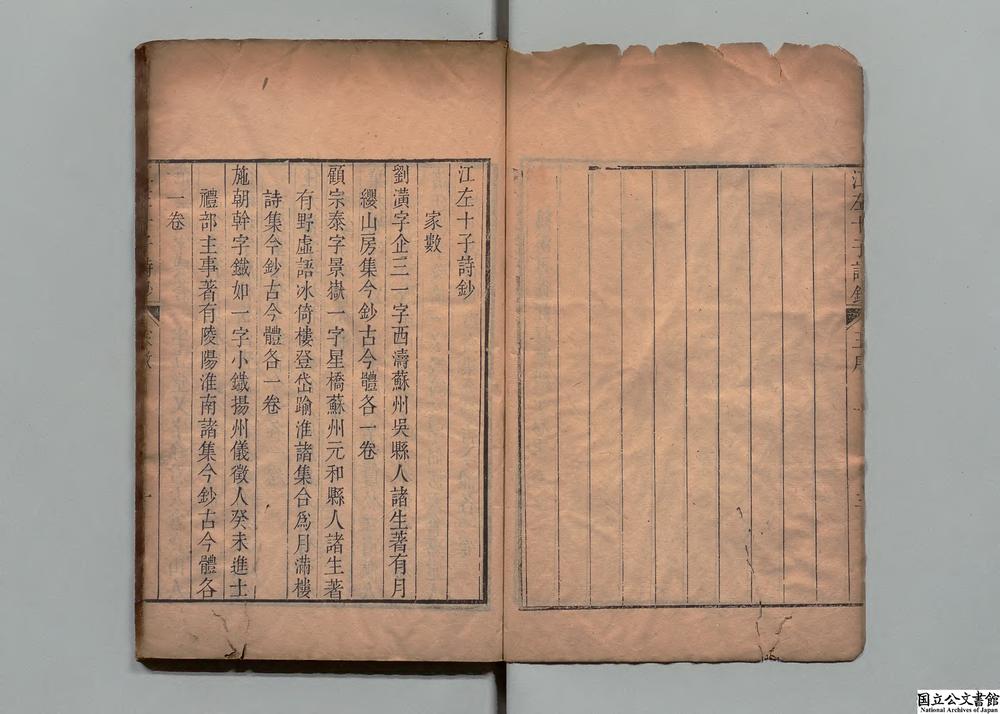 江左十子詩鈔
江左十子詩鈔
家數
劉潢字企三一字西濤蘇州吳縣人諸生著有月
纓山房集今鈔古今體各一卷
顧宗泰字景嶽一字星橋蘇州元和縣人諸生著
有野虛語冰倚樓登岱踰淮諸集合爲月滿樓
詩集今鈔古今體各一卷
施朝幹字鐵如一字小鐵揚州儀徵人癸未進士
禮部主事著有陵陽淮南諸集今鈔古今體各
一卷
国立公文書館
National Archives of Japan